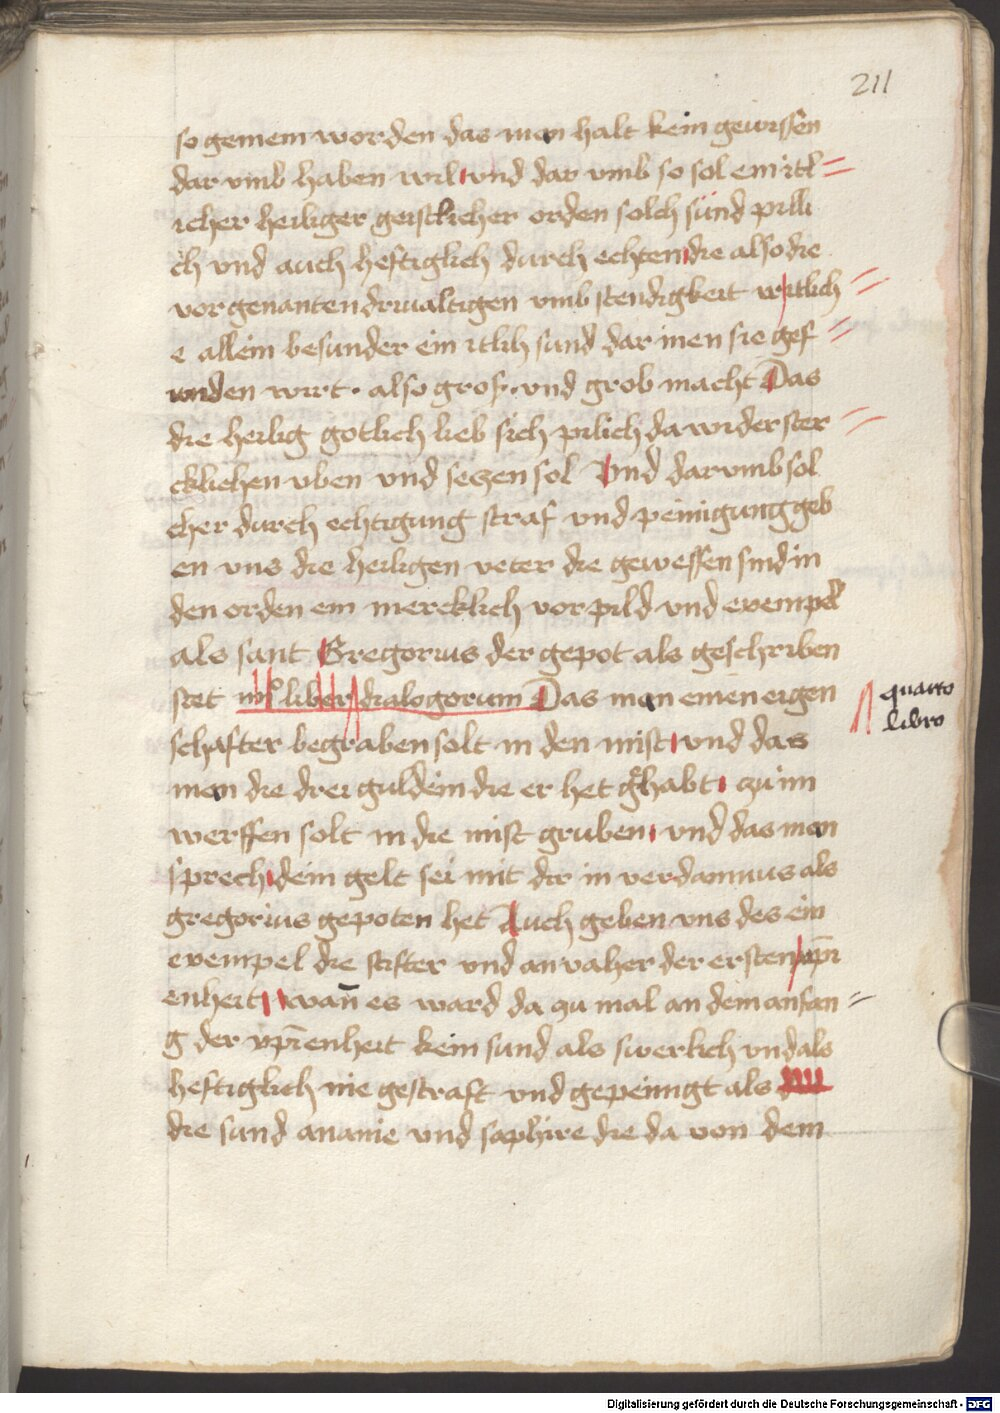 211
so gemein worden das man halt kein gewissen
dar vmb haben wil vnd dar vmb so sol ein itl=
icher heiliger geistlicher orden solch sünd pilli
ch vnd auch heftiglich durch echten die also die
vorgenanten driualtigen vmb stendigkeit witlich =
e allein besunder ein itlich sund dar inen sie gef =
unden wirt · also gros · vnd grob macht Das
die heilig gotlich lieb sich pilich da wider ster =
cklichen vben vnd seczen sol Vnd darvmb sol
cher durch echtigung straf vnd peinigung geb
en vns die heiligen veter die gewessen sind in
den orden ein mercklich vorpild vnd exempel
als sant Gregorius der gepot als geschriben
stet iiijo liber dialogorum Das man einen eigen
quarto
libro
schafter begraben solt in den mist vnd das
man die drei guldein die er het gehabt zu im
werffen solt in die mist gruben vnd das man
sprech dein gelt sei mit dir in verdamnus als
gregorius gepoten het Auch geben vns des ein
exempel die stifter vnd anvaher der ersten xp̄i
enheit wan̄ es ward da zu mal an dem anfan =
g der xp̄ienheit kein sund als swerlich vnd als
heftiglich nie gestraft vnd gepeinigt als
die sund ananie vnd saphire die da von dem
Digitalisierung gefördert durch die Deutsche Forschungsgemeinschaft - DFG